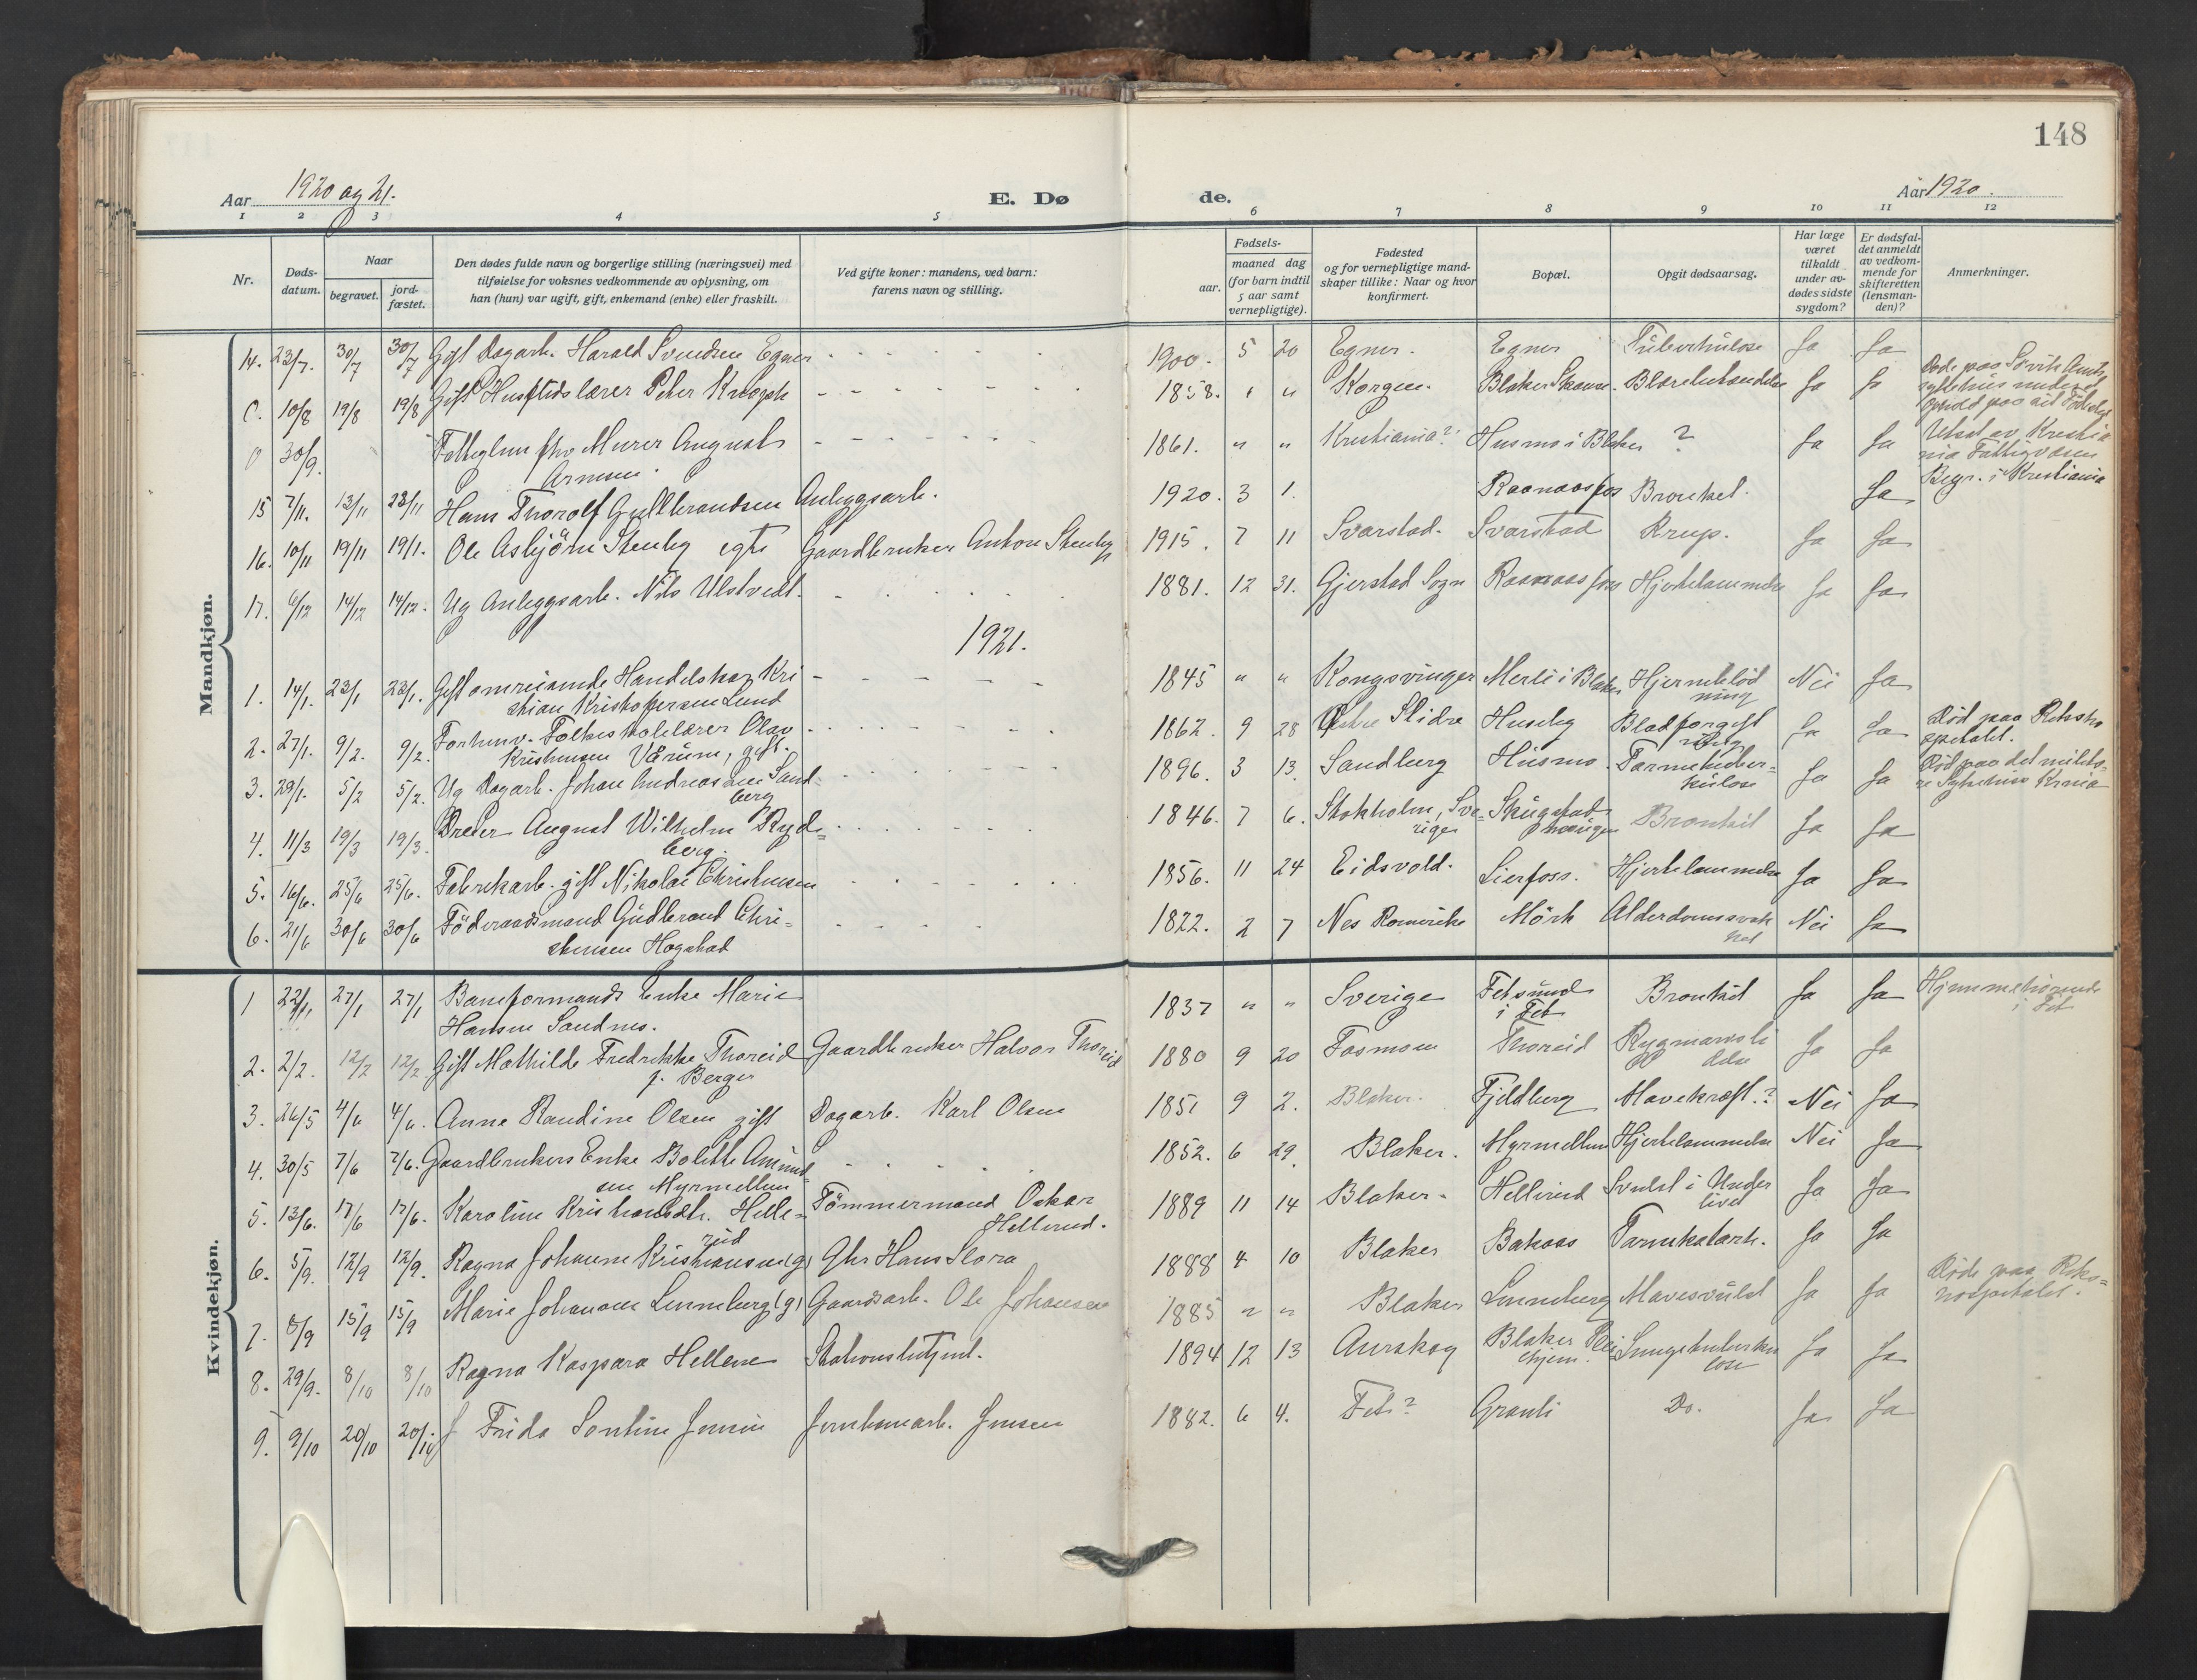 148
Aar 1920 og 21. E. Dø de. Aar 1920.
1 2 3 4 5 6 7 8 9 10 11 12
Nr. Døds-datum. Naar begravet. jord-fæstet. Den dødes fulde navn og borgerlige stilling (næringsvei) med tilføielse for voksnes vedkommende av oplysning, om han (hun) var ugift, gift, enkemand (enke) eller fraskilt. Ved gifte koner: mandens, ved barn: farens navn og stilling. Fødsels- aar. maaned dag (for barn indtil 5 aar samt vernepligtige). Fødested og for vernepligtige mand-skaper tillike: Naar og hvor konfirmert. Bopæl. Opgit dødsaarsag. Har læge været tilkaldt under av-dødes sidste sygdom? Er dødsfal-det anmeldt av vedkom-mende for skifteretten (lensman-den)? Anmerkninger.
Mandkjøn.
14. 23/7. 30/7 30/7 Gift Dagarb. Harald Svendsen Egner 1900. 5 20 Egner. Egner Tuberkulose Ja Ja
0. 10/8 19/8 19/8 Gift Husflidslærer Peter 1858. " " Korgen. Blaker Skanse. Ja Ja Døde paa
0 30/9. fhv Murer August 1861. " " Kristiania? Husmo i Blaker ? Ja Ja Utsat av Kristia
Arnesen nia Fattigvæsen
Begr. i Kristiania
15 7/11. 13/11 23/11 Hans Thorolf Gullbrandsen Anlegsarb. 1920. 3 1. Raanaasfos Bronkit. Ja
16. 10/11 19/11 19/1. Ole Asbjörn Stenby egte Gaardbruker Anton Stenby 1915. 7 11 Svarstad. Svarstad Krup. Ja Ja
17. 6/12 14/12 14/12. Ug Anleggsarb. Nils Ulstvedt. 1881. 12 31. Gjerstad Sogn Raanaasfoss Hjertelammelse Ja Ja
1921.
1. 14/1. 23/1 23/1. Gift omreisende Handelskar Kri 1845 " " Kongsvinger Merli i Blaker Hjerneblöd Nei Ja
stian Kristoffersen Lund ning
2. 27/1. 9/2. 9/2. Forhenv. Folkeskolelærer Olav 1862. 9 28 Østre Slidre Huseby Blodforgift Ja Ja Död paa Riksho
Kristensen Værum, gift. ning spitalet.
3. 29/1. 5/2 5/2. Ug Dagarb. Johan Andreassen Sand- 1896. 3 13. Sandberg Husmo Tarmtuber- Ja Ja Död paa det militæ-
berg kulose re Sykehus Krnia
4. 11/3 19/3 19/3. Dreier August Wilhelm Ryd- 1846. 7 6. Stokholm, Sve- Skugstad Bronkit Ja Ja
berg. rige
5. 16/6. 25/6 25/6. Fabrikarb. gift Nikolai Christensen 1856. 11 24 Eidsvold. Lierfoss. Hjertelammelse Ja Ja
6. 21/6 30/6 30/6 Föderaadsmand Gudbrand Chri- 1822. 2 7 Nes Romerike Mörk Alderdomssvak Nei Ja
stensen Hogstad het
Kvindekjøn.
1 22/1. 27/1 27/1 Baneformands Enke Marie 1837 " " Sverige Fetsund Bronkit Ja Ja Hjemmehørende
Hansen Sandnes. i Fet i Fet
2. 2/2. 12/2 12/2 Gift Mathilde Fredrikke Thoreid Gaardbruker Halvor Thoreid 1880 9 20 Fosmoen Thoreid Rygmarvsli Ja Ja
f. Berger delse
3. 26/5 4/6 4/6. Anna Randine Olsen gift Dagarb. Karl Olsen 1851 9 2. Blaker. Fjeldberg Mavekræft.? Nei Ja
4. 30/5 7/6 7/6. Gaardbrukers Enke Bolette Amund- 1852. 6 29. Blaker. Myrmellem Hjertelammelse Nei Ja
sen Myrmellem
5. 13/6. 17/6 17/6. Karoline Kristiansdtr. Helle- Tömmermand Oskar 1889 11 14 Blaker. Hellerud Svulst i Under Ja Ja
rud Hellerud. livet
6. 5/9. 12/9 12/9. Ragna Johanne Kristiansen (g) Gbr Hans Slora 1888 4 10 Blaker Bakaas Tarmkatarh. Ja Ja
7. 8/9 15/9 15/9 Marie Johansen Linneberg (g) Gaardsarb. Ole Johansen 1885 " " Blaker Linneberg Mavesvulst Ja Ja Döde paa Riks-
hospitalet.
8. 29/9. 8/10 8/10 Ragna Kaspara Hellene Stationsbetjent. 1894 12 13 Aurskog Blaker Plei- Lungetuberku Ja Ja
ehjem. lose
9. 9/10 20/10 20/10 Frida Jensen Jernbanearb. Jensen 1882. 6 4. Fet? Granli Do. Ja Ja